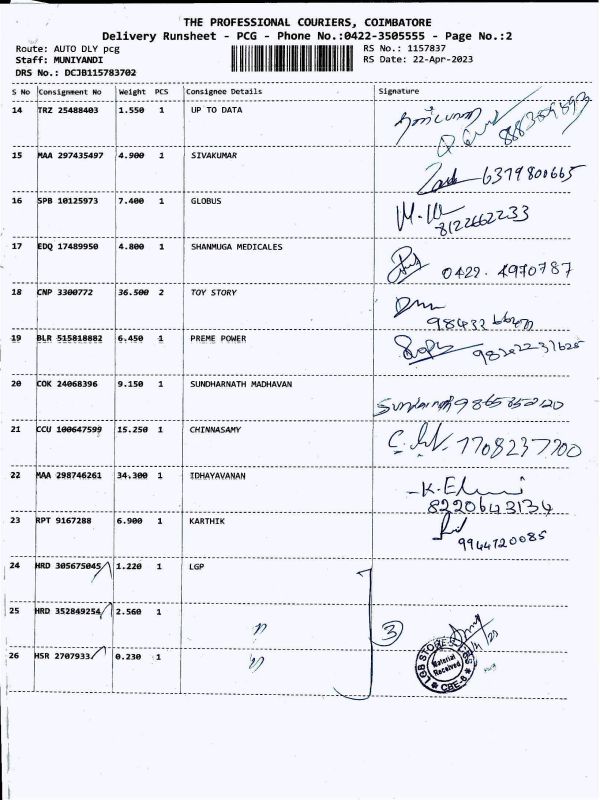 THE PROFESSIONAL COURIERS, COIMBATORE
Delivery Runsheet - PCG - Phone No.:0422-3505555 - Page No.:2
Route: AUTO DLY pcg RS No.: 1157837
Staff: MUNIYANDI RS Date: 22-Apr-2023
DRS No.: DCJB115783702
S No Consignment No Weight PCS Consignee Details Signature
14 TRZ 25488403 1.550 1 UP TO DATA
15 MAA 297435497 4.900 1 SIVAKUMAR 6379800665
16 SPB 10125973 7.400 1 GLOBUS 8122662233
17 EDQ 17489950 4.800 1 SHANMUGA MEDICALES 0422. 4970787
18 CNP 3300772 36.500 2 TOY STORY
19 BLR 515818882 6.450 1 PREME POWER
20 COK 24068396 9.150 1 SUNDHARNATH MADHAVAN
21 CCU 100647599 15.250 1 CHINNASAMY 7708237700
22 MAA 298746261 34.300 1 IDHAYAVANAN 8220643134
23 RPT 9167288 6.900 1 KARTHIK 9944720085
24 HRD 305675045 1.220 1 LGP
25 HRD 352849254 2.560 1 3
26 HSR 2707933 0.230 1
LGB STORES
Material
Received
CBE-6